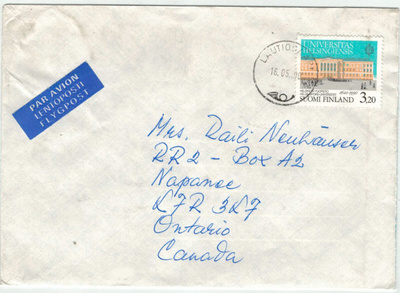 PAR AVION
LENTOPOSTI
FLYGPOST
LAUTIO
16.05.
UNIVERSITAS
HELSINGIENSIS
SUOMI FINLAND 3,20
Mrs. Raili Neuhäuser
RR2 - Box A2
Napanee
K7R 3L7
Ontario
Canada